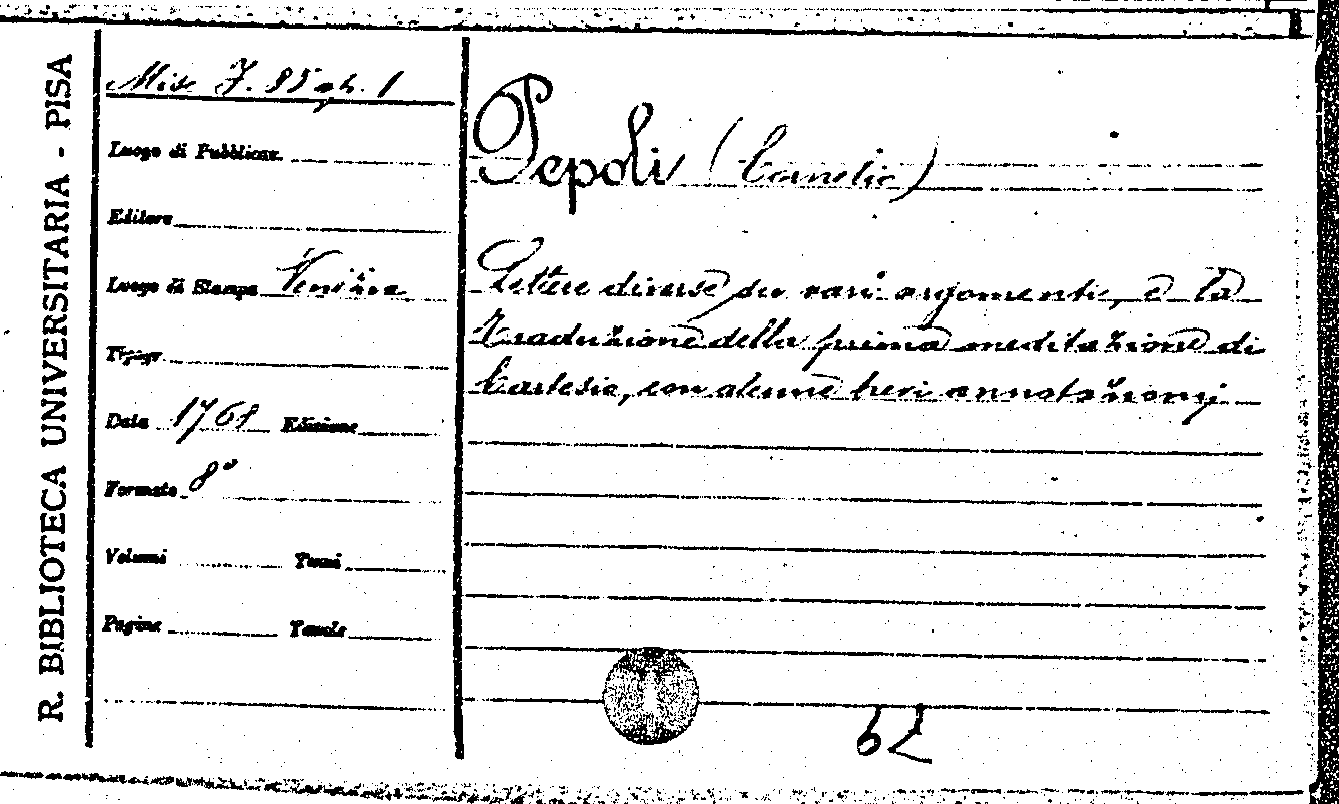 R. BIBLIOTECA UNIVERSITARIA - PISA
Misc J. 85 op. 1
Luogo di Pubblicaz.
Editore
Luogo di Stampa Venezia
Tipogr.
Data 1761 Edizione
Formato 8°
Volumi Tomi
Pagine Tavole
Pepoli (Cornelio)
Lettere diverse su vari argomenti, e la
traduzione della prima meditazione di
Cartesio, con alcune brevi annotazionj
62